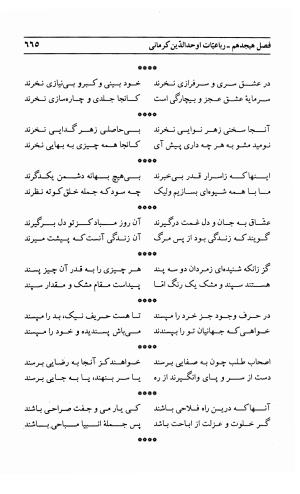 فصل هیجدهم – رباعیّات اوحدالدّین کرمانی ۶۶۵
****
در عشق سری و سرفرازی نخرند خود بینی و کبر و بی‌نیازی نخرند
سرمایهٔ عشق عجز و بیچارگی است کانجا جلدی و چاره‌سازی نخرند
****
آنجا سخنی زهر نوایی نخرند بی‌حاصلی زهر گدایی نخرند
نومید مشو به هر چه داری پیش آی کانجا همه چیزی به بهایی نخرند
****
اینها که زاسرار قدر بی‌خبرند بی‌هیچ بهانه دشمن یکدگرند
ما با همه شیوه‌ای بسازیم ولیک چه سود که جمله خلق کوته نظرند
****
عشّاق به جان و دل غمت درگیرند آن روز مباد کز تو دل برگیرند
گویند که زندگی بود از پس مرگ آن زندگی آنست که پیشت میرند
****
گر زانکه شنیده‌ای زمردان دو سه پند هر چیزی را به قدر آن چیز پسند
هستند سپند و مشک یک رنگ امّا پیداست مقام مشک و مقدار سپند
****
در حرف وجود جز خرد را مپسند تا هست حریف نیک، بد را مپسند
خواهی که جهانیان تو را بپسندند می‌باش پسندیده و خود را مپسند
****
اصحاب طلب چون به صفایی برسند خواهند کز آنجا به رضایی برسند
دست از سر و پای وانگیرند از ره یا سر بنهند، یا به جایی برسند
****
آنها که درین راه فلاحی باشند کی یار می و جفت صراحی باشند
گر خلوت و عزلت از اباحت باشد پس جملهٔ انبیا مباحی باشند
****